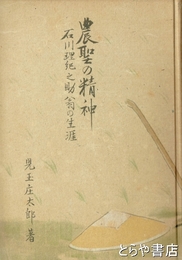 農聖の精神
石川理紀之助翁の生涯
児玉庄太郎著
とらや書店